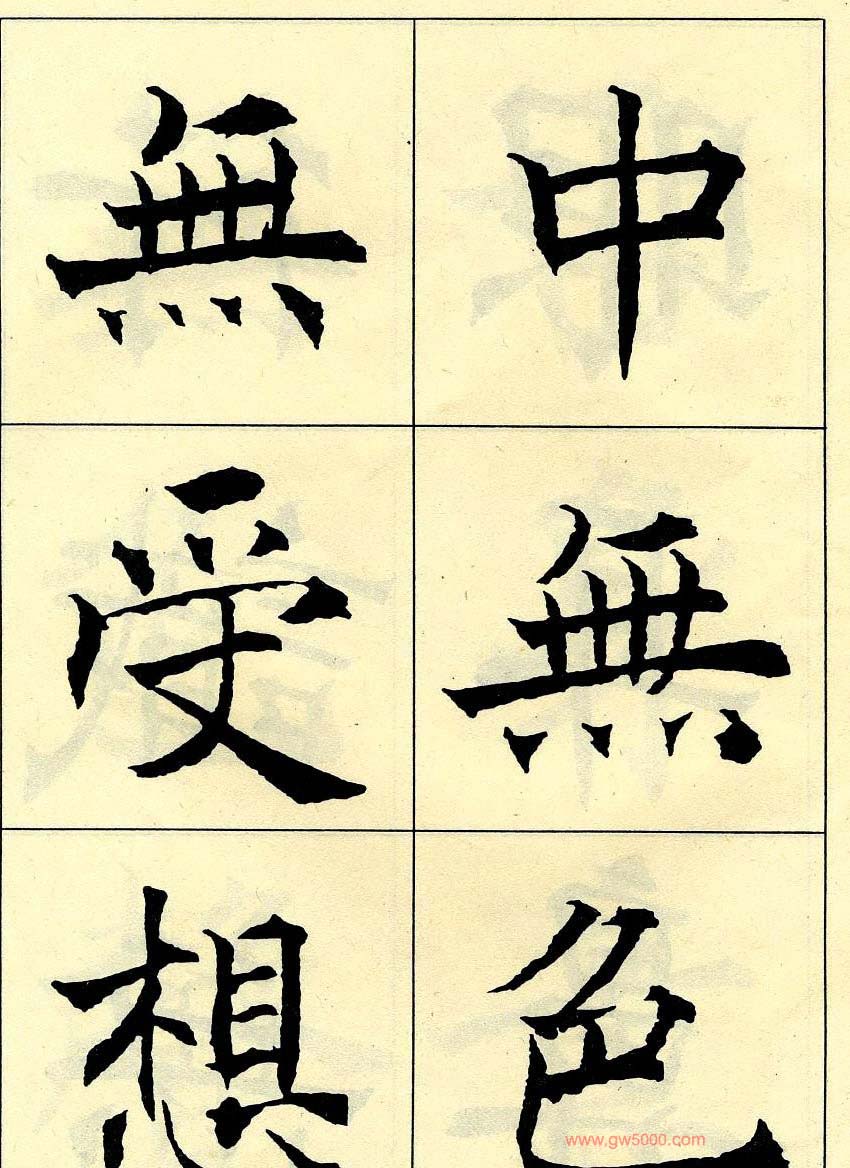 中無色
無受想
www.gw5000.com